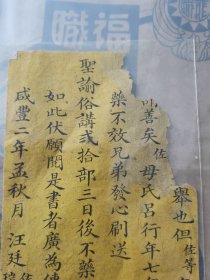 福
職
舉也但佐等
善矣佐母氏呂行年七
藥不效兄弟發心刷送
聖諭俗講弍拾部三日後不藥
如此伏願閱是書者廣為
咸豐二年孟秋月汪廷